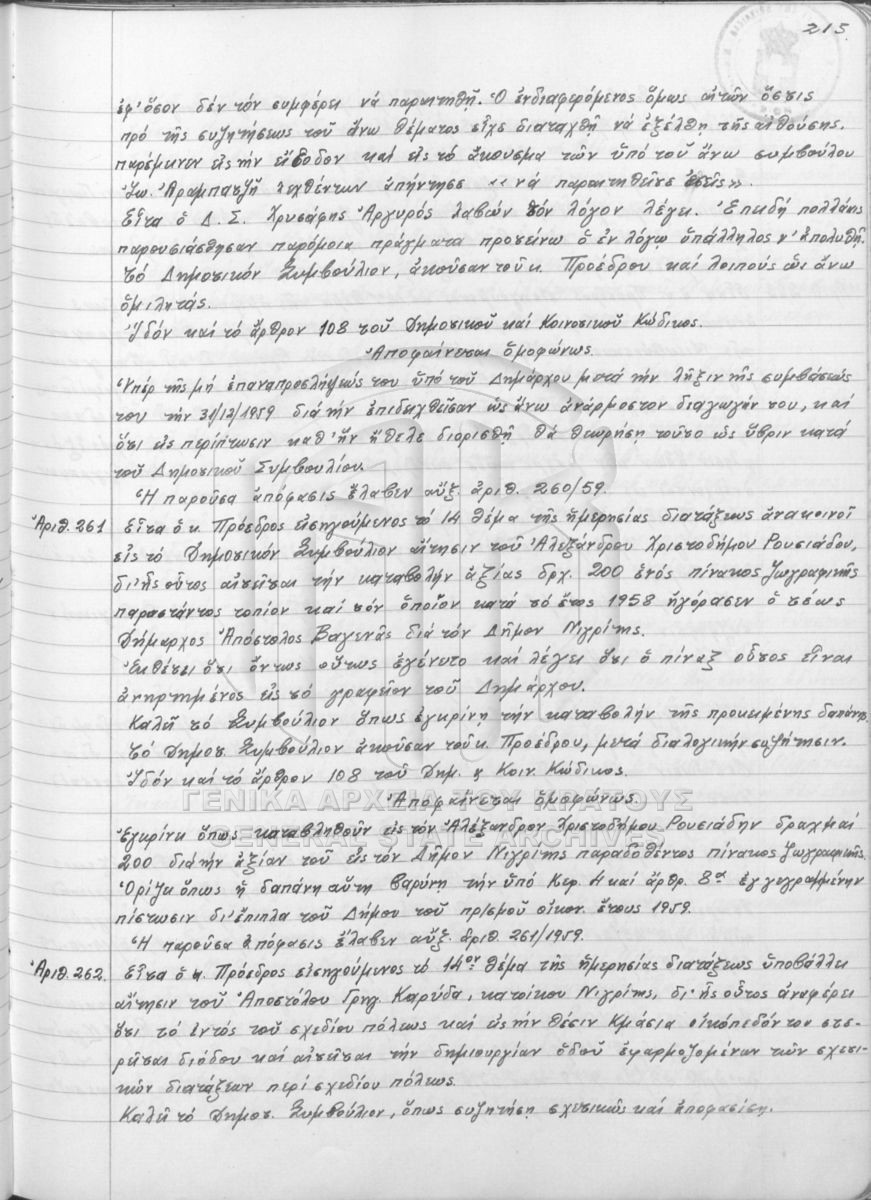 215.
ἐφ' ὅσον δέν τόν συμφέρει νά παραιτηθῇ. Ὁ ἐνδιαφερόμενος ὅμως αἰτῶν ὅστις
πρό τῆς συζητήσεως τοῦ ἄνω θέματος εἶχε διαταχθῆ νά ἐξέλθῃ τῆς αἰθούσης.
παρέμεινεν εἰς τήν εἴσοδον καί εἰς τό ἄκουσμα τῶν ὑπό τοῦ ἄνω συμβούλου
Ἰω. Ἀραμπατζῆ λεχθέντων ἀπήντησε «νά παραιτηθεῖτε ἐσεῖς».
Εἶτα ὁ Δ. Σ. Χρυσάφης Ἀργυρός λαβών τόν λόγον λέγει. Ἐπειδή πολλάκις
παρουσιάσθησαν παρόμοια πράγματα προτείνω ὁ ἐν λόγῳ ὑπάλληλος ν' ἀπολυθῇ.
Τό Δημοτικόν Συμβούλιον, ἀκοῦσαν τοῦ κ. Προέδρου καί λοιπούς ὡς ἄνω
ὁμιλητάς.
Ἰδόν καί τό ἄρθρον 108 τοῦ Δημοτικοῦ καί Κοινοτικοῦ Κώδικος.
Ἀποφαίνεται ὁμοφώνως.
Ὑπέρ τῆς μή ἐπαναπροσλήψεώς του ὑπό τοῦ Δημάρχου μετά τήν λῆξιν τῆς συμβάσεώς
του τήν 31/12/1959 διά τήν ἐπιδειχθεῖσαν ὡς ἄνω ἀνάρμοστον διαγωγήν του, καί
ὅτι εἰς περίπτωσιν καθ' ἥν ἤθελε διορισθῆ θά θεωρήσῃ τοῦτο ὡς ὕβριν κατά
τοῦ Δημοτικοῦ Συμβουλίου.
Ἡ παροῦσα ἀπόφασις ἔλαβεν αὔξ. ἀριθ. 260/59.
Ἀριθ. 261 Εἶτα ὁ κ. Πρόεδρος εἰσηγούμενος τό 14 θέμα τῆς ἡμερησίας διατάξεως ἀνακοινοῖ
εἰς τό Δημοτικόν Συμβούλιον αἴτησιν τοῦ Ἀλεξάνδρου Χριστοδήμου Ρουσιάδου,
δι' ἧς οὗτος αἰτεῖται τήν καταβολήν ἀξίας δρχ. 200 ἑνός πίνακος ζωγραφικῆς
παραστάντος τοπίον καί τόν ὁποῖον κατά τό ἔτος 1958 ἠγόρασεν ὁ τέως
Δήμαρχος Ἀπόστολος Βαγενᾶς διά τόν Δῆμον Νιγρίτης.
Ἐκθέτει ὅτι ὄντως οὕτως ἐγένετο καί λέγει ὅτι ὁ πίναξ οὗτος εἶναι
ἀνηρτημένος εἰς τό γραφεῖον τοῦ Δημάρχου.
Καλεῖ τό Συμβούλιον ὅπως ἐγκρίνῃ τήν καταβολήν τῆς προκειμένης δαπάνης.
Τό Δημοτ. Συμβούλιον ἀκοῦσαν τοῦ κ. Προέδρου, μετά διαλογικήν συζήτησιν.
Ἰδόν καί τό ἄρθρον 108 τοῦ Δημ. κ Κοιν. Κώδικος.
Ἀποφαίνεται ὁμοφώνως
ΓΕΝΙΚΑ ΑΡΧΕΙΑ ΤΟΥ ΚΡΑΤΟΥΣ
GENERAL STATE ARCHIVES
Ἐγκρίνει ὅπως καταβληθοῦν εἰς τόν Ἀλέξανδρον Χριστοδήμου Ρουσιάδην δραχμαί
200 διά τήν ἀξίαν τοῦ εἰς τόν Δῆμον Νιγρίτης παραδοθέντος πίνακος ζωγραφικῆς.
Ὁρίζει ὅπως ἡ δαπάνη αὕτη βαρύνῃ τήν ὑπό Κεφ. Α καί ἄρθρ. 8α ἐγγεγραμμένην
πίστωσιν δι' ἔπιπλα τοῦ Δήμου τοῦ πρ/σμοῦ οἰκον. ἔτους 1959.
Ἡ παροῦσα ἀπόφασις ἔλαβεν αὔξ. ἀριθ. 261/1959.
Ἀριθ. 262. Εἶτα ὁ κ. Πρόεδρος εἰσηγούμενος τό 14ον θέμα τῆς ἡμερησίας διατάξεως ὑποβάλλει
αἴτησιν τοῦ Ἀποστόλου Γρηγ. Καρύδα, κατοίκου Νιγρίτης, δι' ἧς οὗτος ἀναφέρει
ὅτι τό ἐντός τοῦ σχεδίου πόλεως καί εἰς τήν θέσιν Κμάσια οἰκόπεδόν του στε-
ρεῖται διόδου καί αἰτεῖται τήν δημιουργίαν ὁδοῦ ἐφαρμοζομένων τῶν σχετι-
κῶν διατάξεων περί σχεδίου πόλεως.
Καλεῖ τό Δημοτ. Συμβούλιον, ὅπως συζητήσῃ σχετικῶς καί ἀποφασίσῃ.